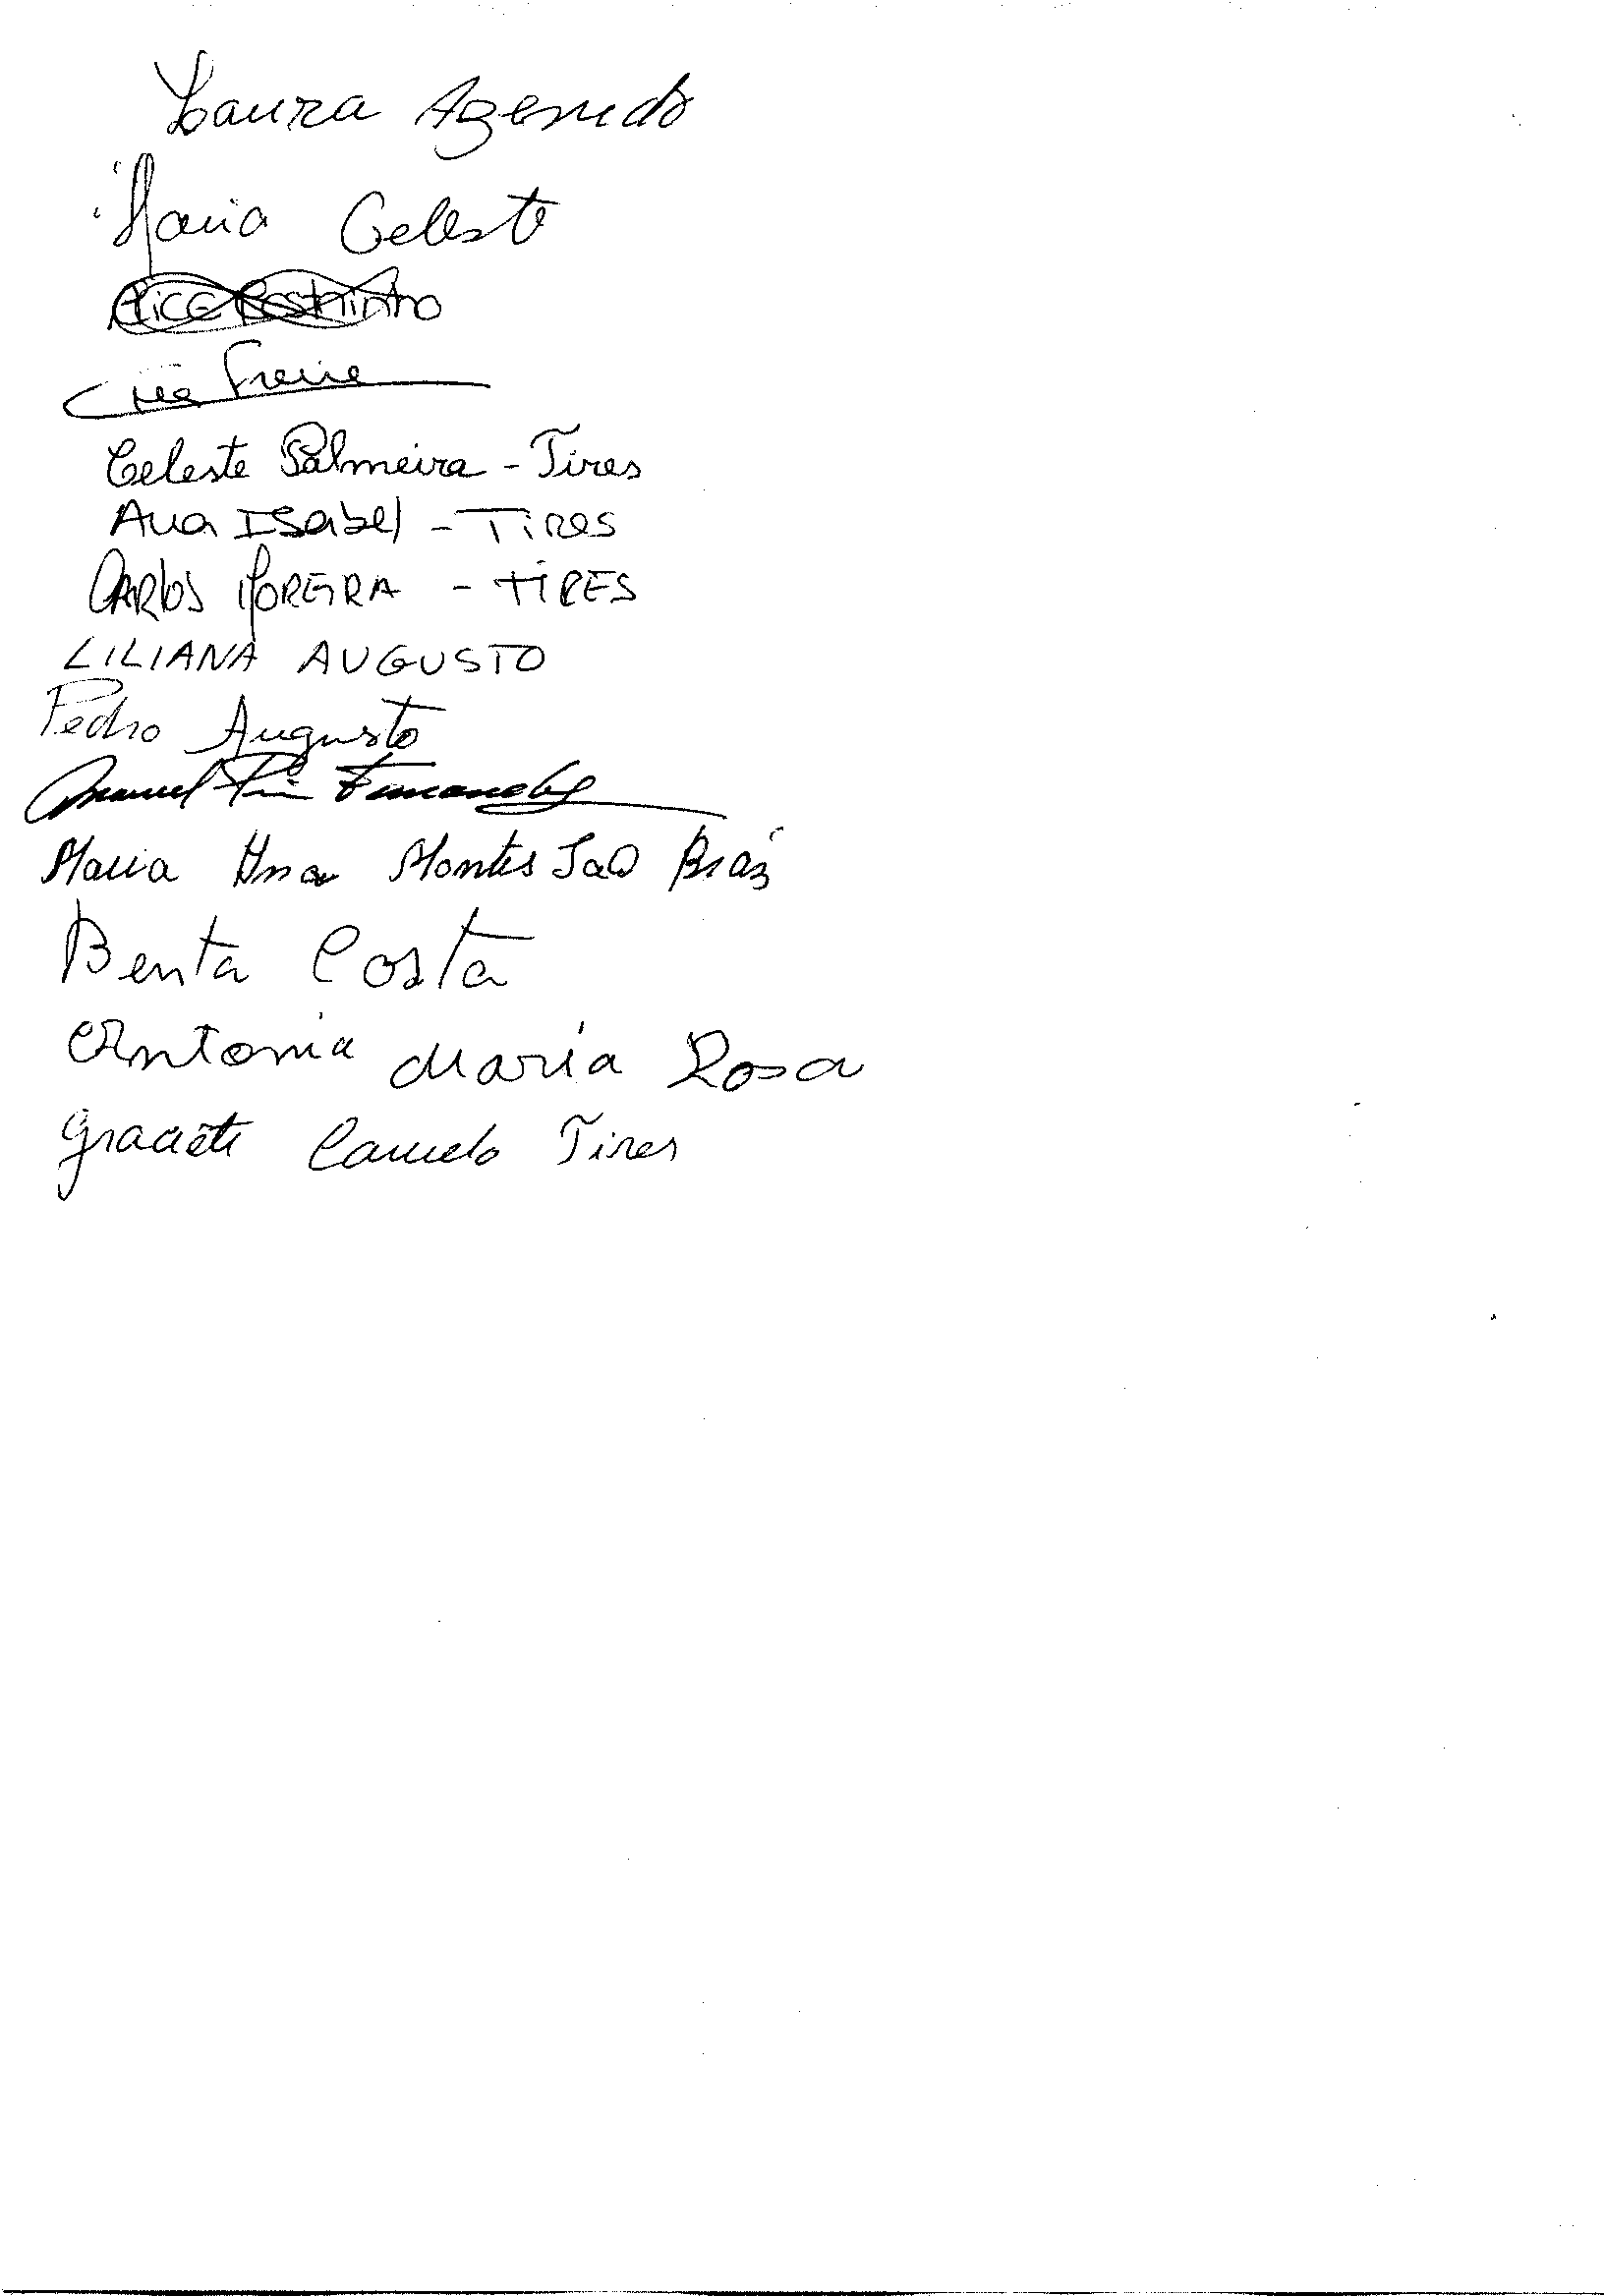 Laura Azevedo
Maria Celeste
Alice
Freire
Celeste Palmeira - Tires
Ana Isabel - Tires
CARLOS MOREIRA - TIRES
LILIANA AUGUSTO
Pedro Augusto
Manuel Fernandes
Maria Ana Montes Sao Bráz
Benta Costa
Antonia Maria Rosa
Graciete Camelo Tires